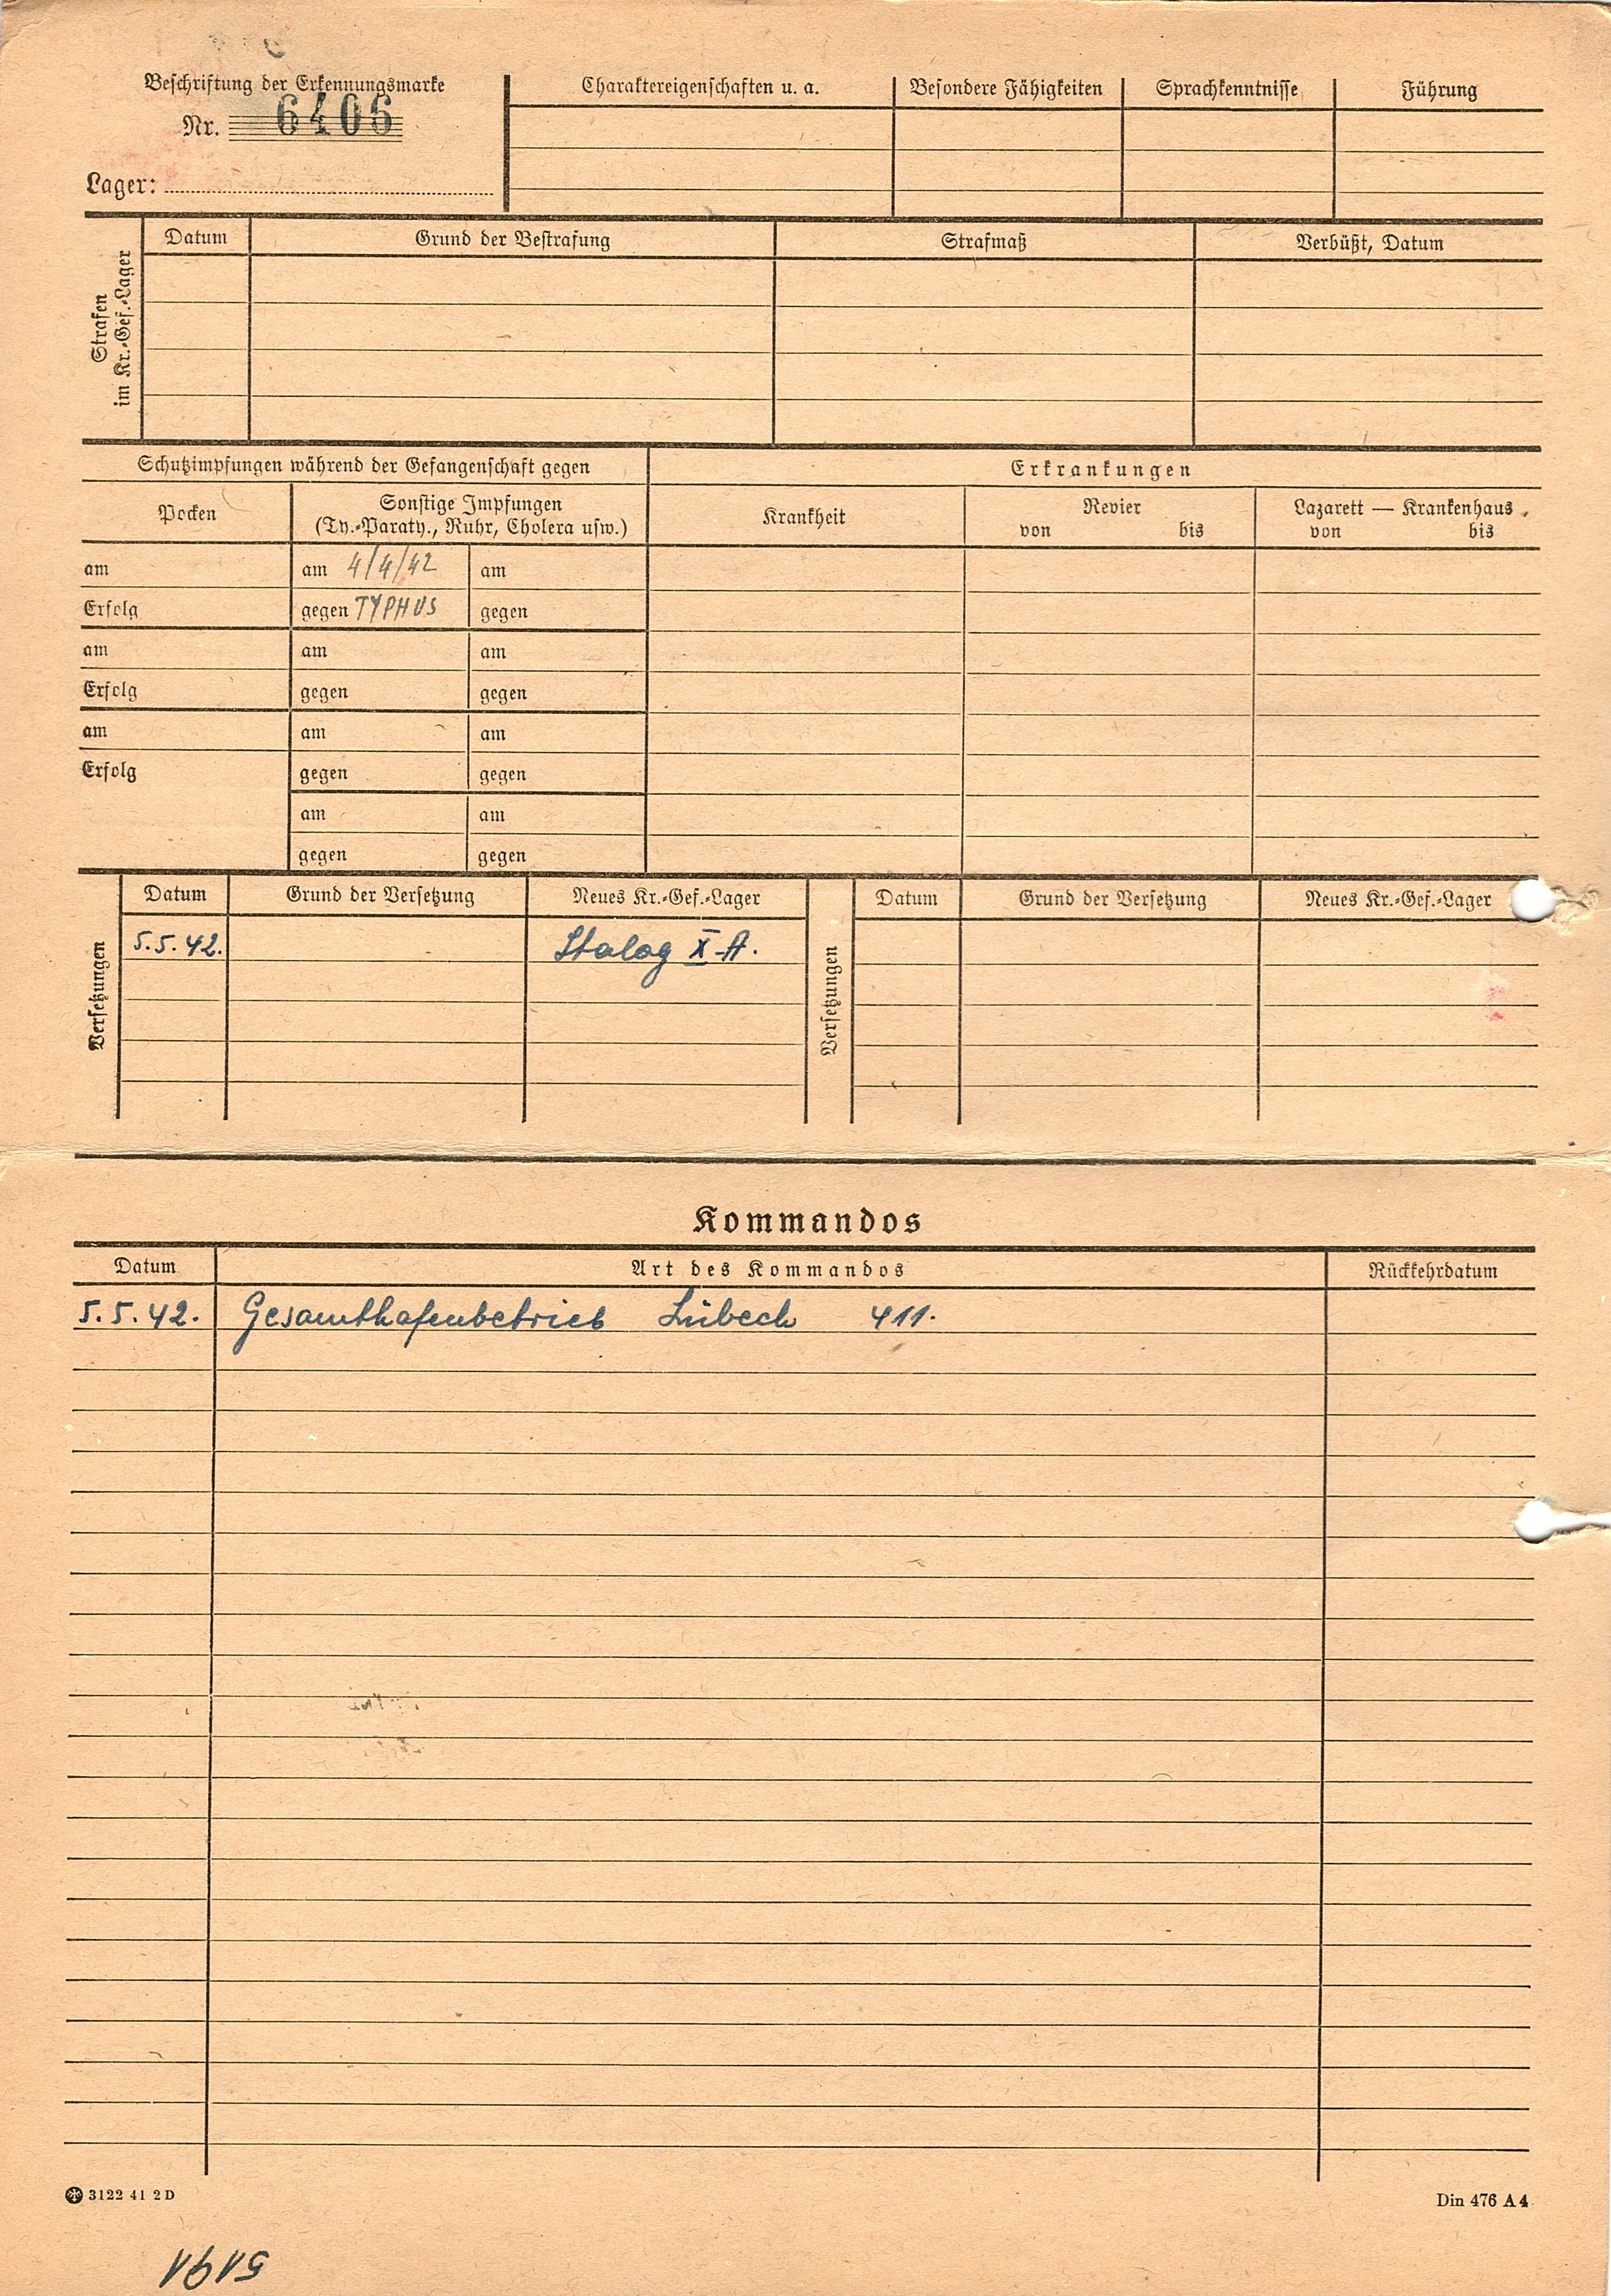 Beschriftung der Erkennungsmarke
Nr. 6406
Lager:
Charaktereigenschaften u. a.
Besondere Fähigkeiten
Sprachkenntnisse
Führung
Strafen
im Kr.-Gef.-Lager
Datum
Grund der Bestrafung
Strafmaß
Verbüßt, Datum
Schutzimpfungen während der Gefangenschaft gegen
Erkrankungen
Pocken
Sonstige Impfungen
(Ty.-Paraty., Ruhr, Cholera usw.)
Krankheit
Revier
von bis
Lazarett — Krankenhaus
von bis
am am 4/4/42 am
Erfolg gegen TYPHUS gegen
am am am
Erfolg gegen gegen
am am am
Erfolg gegen gegen
am am
gegen gegen
Versetzungen
Datum Grund der Versetzung Neues Kr.-Gef.-Lager
5.5.42. Stalag X A.
Versetzungen
Datum Grund der Versetzung Neues Kr.-Gef.-Lager
Kommandos
Datum Art des Kommandos Rückkehrdatum
5.5.42. Gesamthafenbetrieb Lübeck 411.
3122 41 2 D
Din 476 A 4
5191